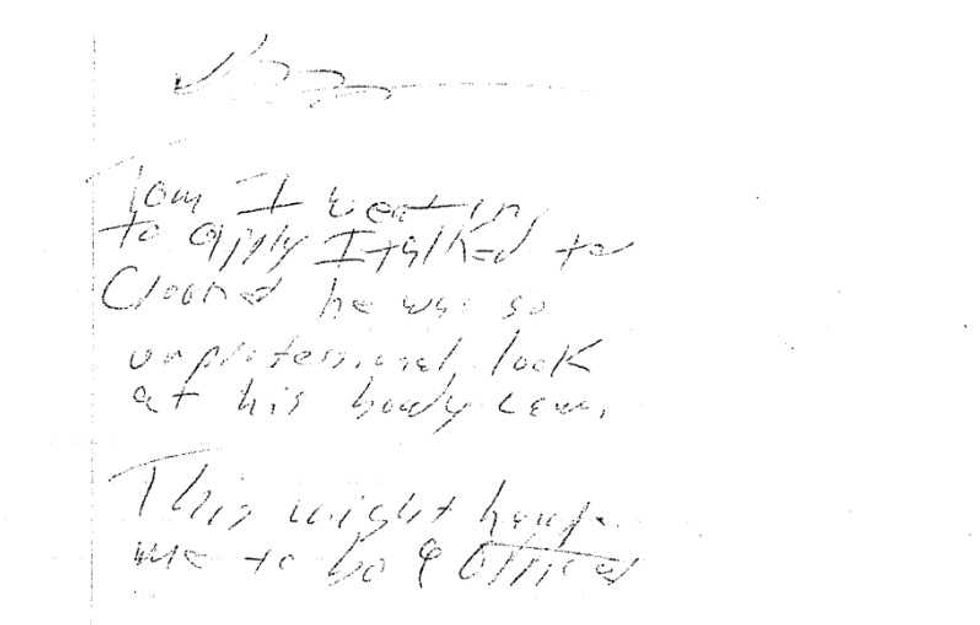 Tom I went in
to apply I talked to
he was so
unprofessional look
at his body cam,
This might
me to be a officer